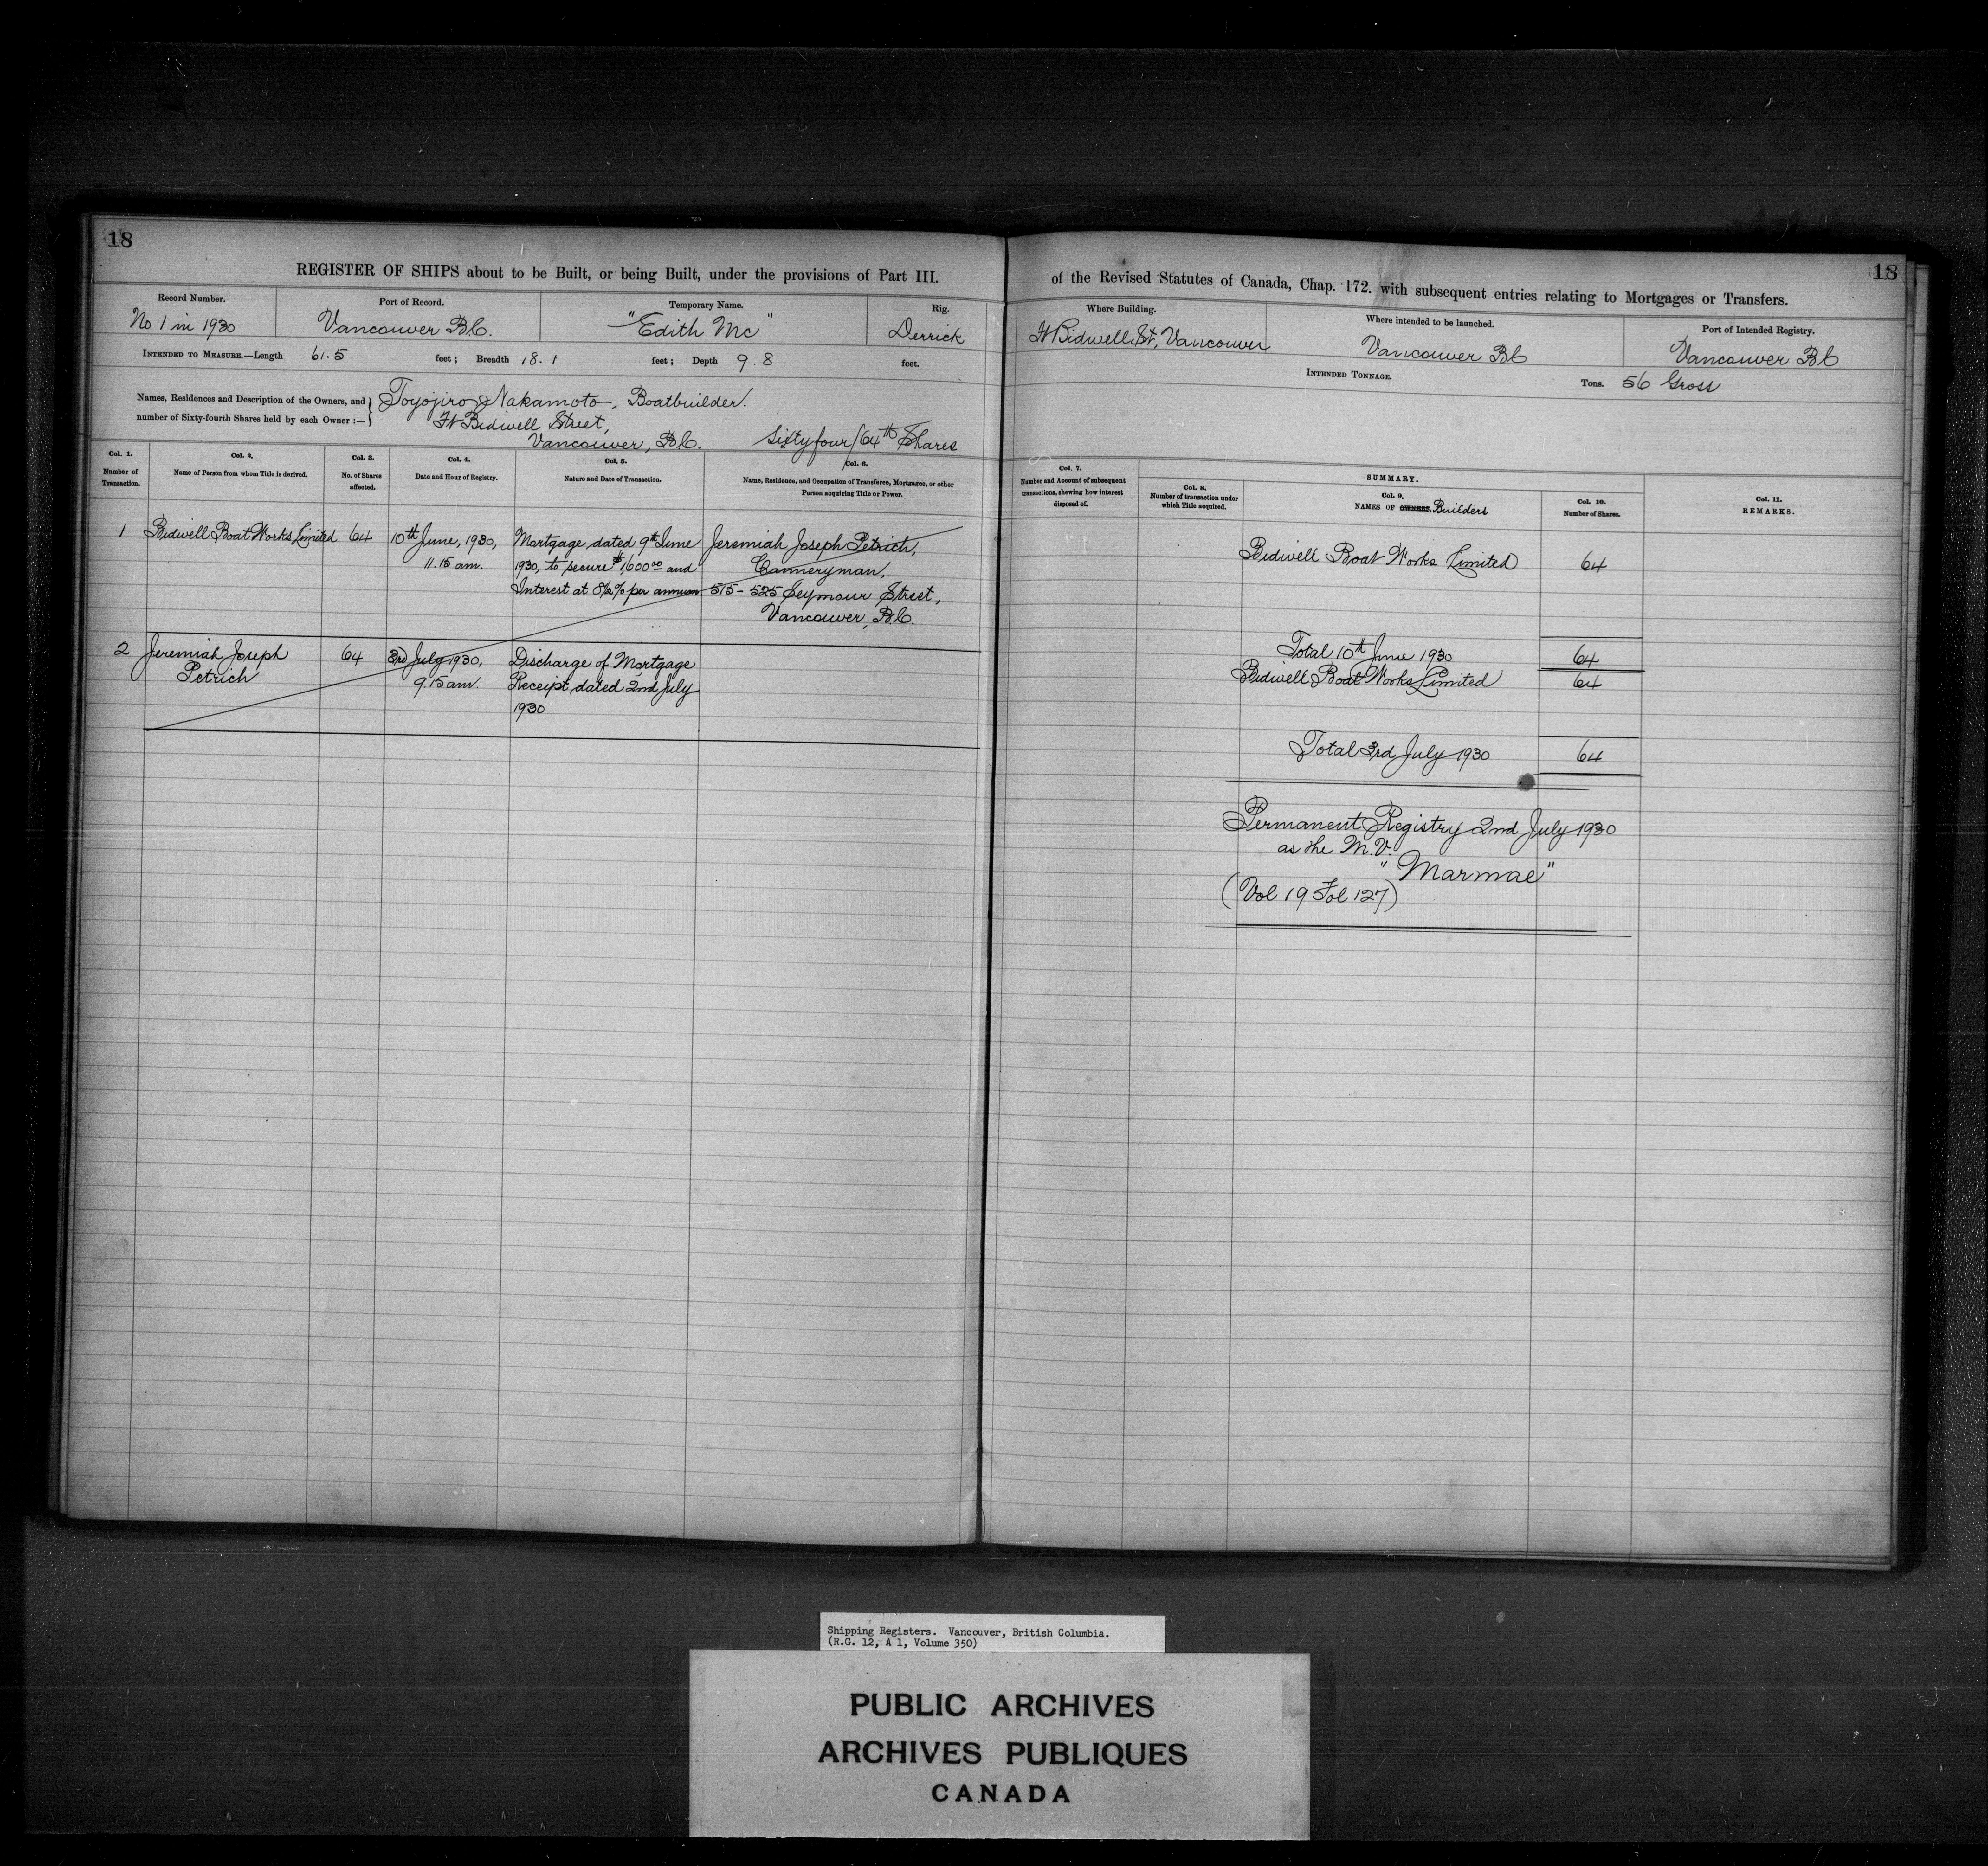 18
REGISTER OF SHIPS about to be Built, or being Built, under the provisions of Part III.
Record Number.
No 1 in 1930
Port of Record.
Vancouver B.C.
Temporary Name.
"Edith Mc"
Rig.
Derrick
INTENDED TO MEASURE.—Length 61.5 feet; Breadth 18.1 feet; Depth 9.8 feet.
Names, Residences and Description of the Owners, and
number of Sixty-fourth Shares held by each Owner :—
Toyojiro Nakamoto, Boatbuilder.
Ft Bidwell Street,
Vancouver, B.C. Sixty four/64ths Shares
Col. 1.
Number of
Transaction.
Col. 2.
Name of Person from whom Title is derived.
Col. 3.
No. of Shares
affected.
Col. 4.
Date and Hour of Registry.
Col. 5.
Nature and Date of Transaction.
Col. 6.
Name, Residence, and Occupation of Transferee, Mortgagee, or other
Person acquiring Title or Power.
1
Bidwell Boat Works Limited
64
10th June, 1930,
11.15 am.
Mortgage, dated 9th June
1930, to secure $1,600.00 and
Interest at 8½% per annum
Jeremiah Joseph Petrich,
Canneryman,
515-525 Seymour Street,
Vancouver, B.C.
2
Jeremiah Joseph
Petrich
64
3rd July 1930,
9.15 am.
Discharge of Mortgage
Receipt, dated 2nd July
1930
18
of the Revised Statutes of Canada, Chap. 172. with subsequent entries relating to Mortgages or Transfers.
Where Building.
Ft Bidwell St, Vancouver
Where intended to be launched.
Vancouver BC
Port of Intended Registry.
Vancouver B.C
INTENDED TONNAGE. Tons. 56 Gross
Col. 7.
Number and Account of subsequent
transactions, showing how interest
disposed of.
SUMMARY.
Col. 8.
Number of transaction under
which Title acquired.
Col. 9.
NAMES OF OWNERS. Builders
Col. 10.
Number of Shares.
Col. 11.
REMARKS.
Bidwell Boat Works Limited 64
Total 10th June 1930 64
Bidwell Boat Works Limited 64
Total 3rd July 1930 64
Permanent Registry 2nd July 1930
as the M.V.
"Marmae"
(Vol 19 Fol 127)
Shipping Registers. Vancouver, British Columbia.
(R.G. 12, A 1, Volume 350)
PUBLIC ARCHIVES
ARCHIVES PUBLIQUES
CANADA